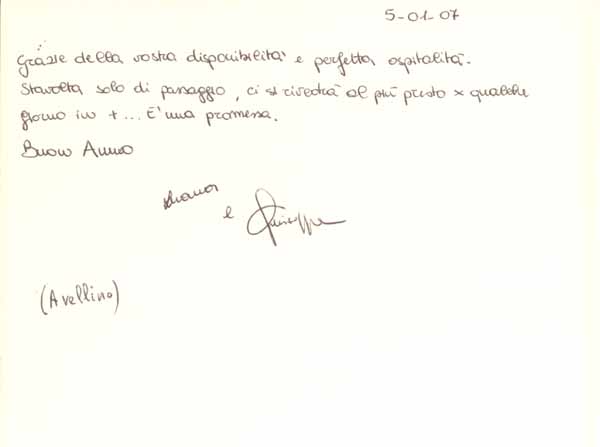 5-01-07
Grazie della vostra disponibilità e perfetta ospitalità.
Stavolta solo di passaggio, ci si rivedrà al più presto x qualche
giorno in + ... E' una promessa.
Buon Anno
e Giuseppe
(Avellino)